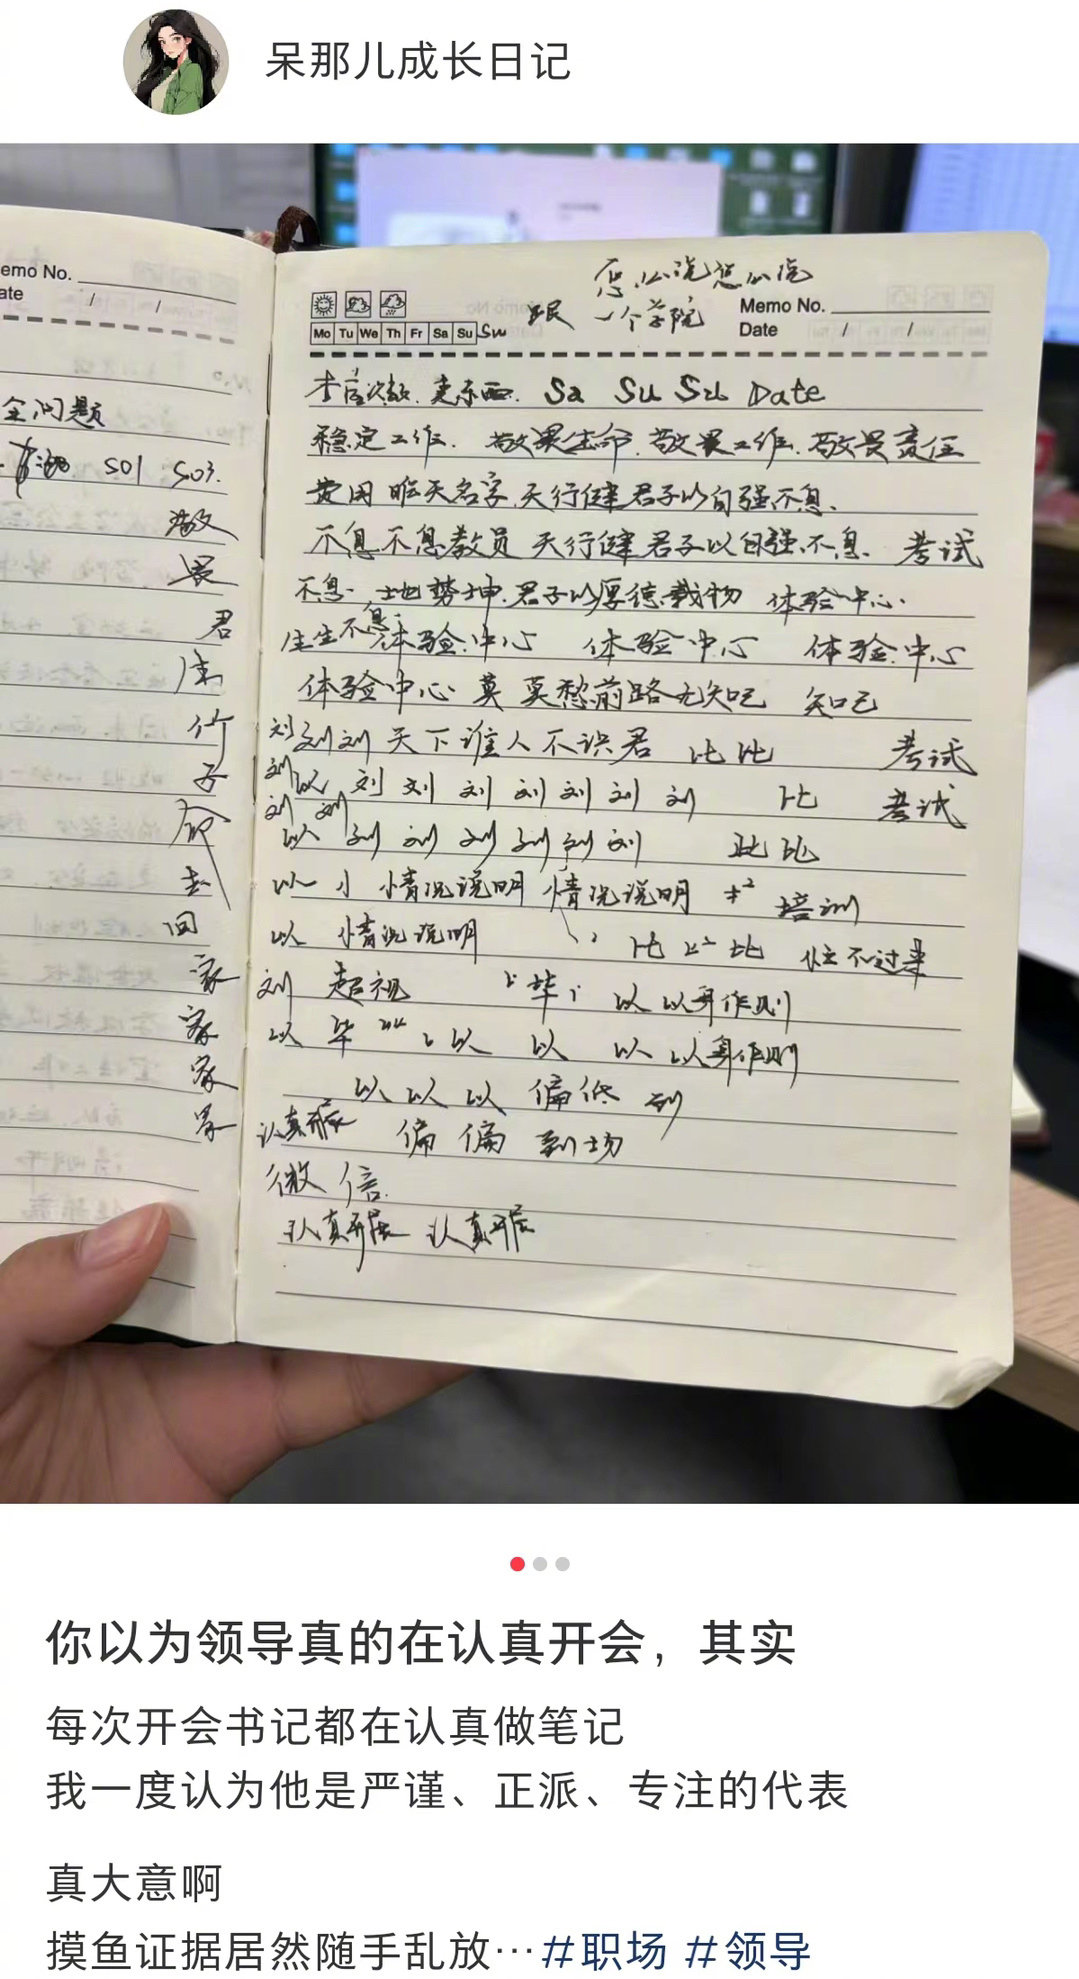 呆那儿成长日记
emo No.
ate
/ /
全问题
S01 S03.
敬
畏
君
子
命
去
回
家
家
家
您怎么说您怎么说
一个学院
Memo No.
Mo Tu We Th Fr Sa Su Su
Date / /
Sa Su Su Date
稳定工作. 敬畏生命. 敬畏工作. 敬畏责任
费用 昨天名字. 天行健君子以自强不息.
不息不息教员 天行健君子以自强不息. 考试
不息. 地势坤. 君子以厚德载物 体验中心.
生生不息. 体验中心 体验中心 体验中心
体验中心 莫 莫愁前路无知己 知己
刘刘刘 天下谁人不识君 比比 考试
刘以 刘 刘 刘 刘 刘 刘 刘 比 考试
刘 刘
以 刘 刘 刘 刘 刘 刘 比比
以一 小 情况说明 情况说明 培训
以 情况说明 比 比 忙不过来
刘 超视 毕 以 以身作则
以 毕 以 以 以 以身作则
以 以 以 偏低 到
认真开展 偏 偏 到场
微信.
认真开展 认真开展
你以为领导真的在认真开会，其实
每次开会书记都在认真做笔记
我一度认为他是严谨、正派、专注的代表
真大意啊
摸鱼证据居然随手乱放…#职场 #领导